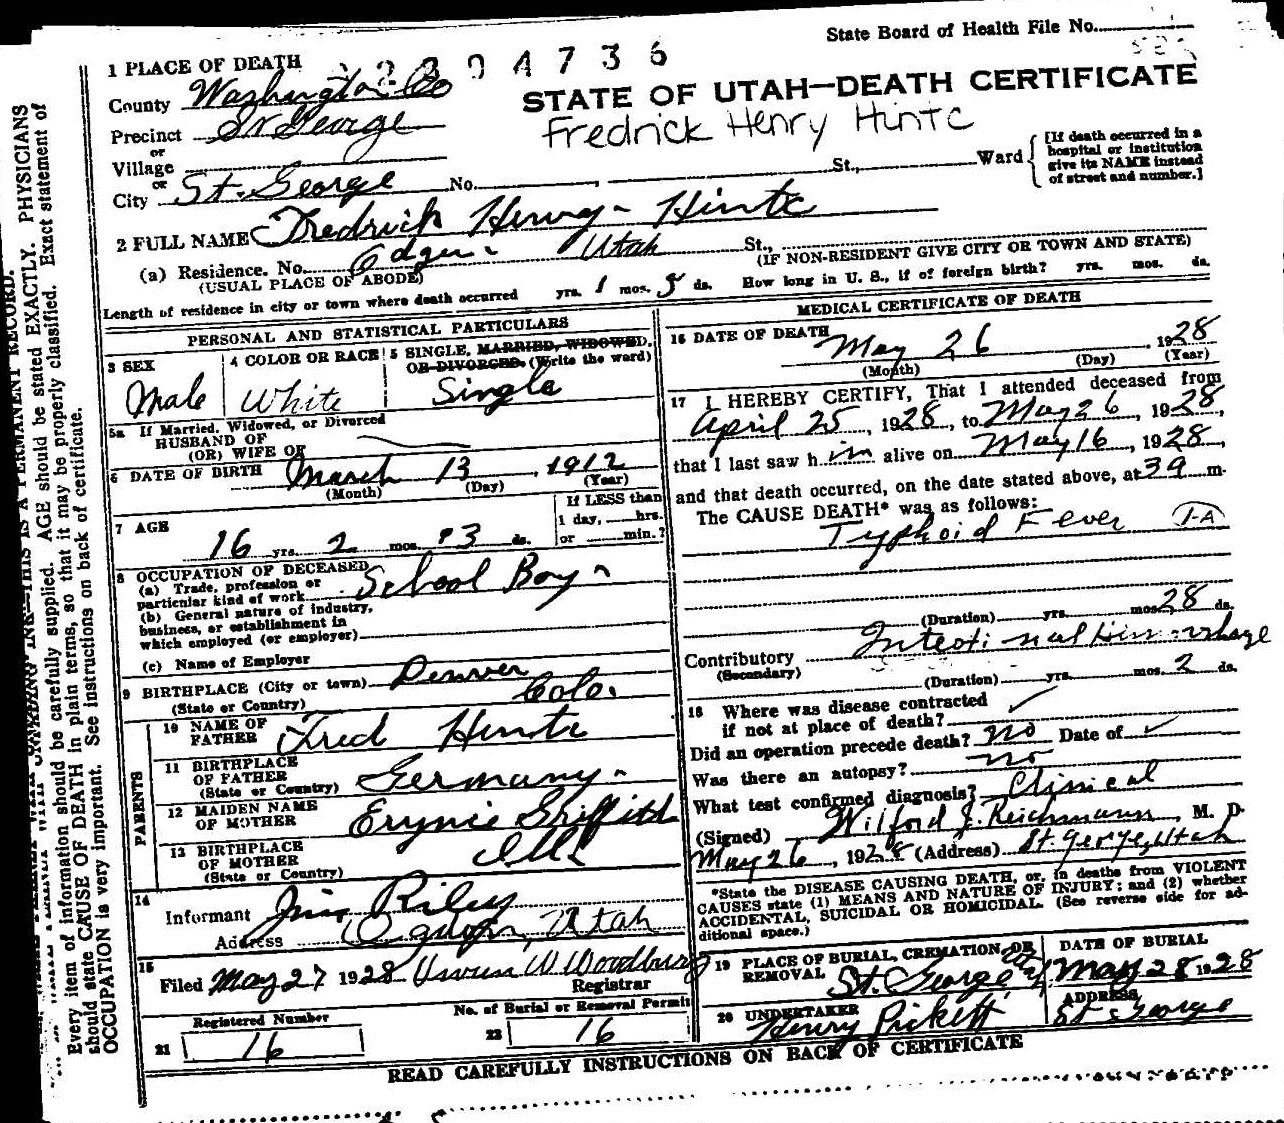 State Board of Health File No.
2 3 0 4 7 3 6
STATE OF UTAH—DEATH CERTIFICATE
Fredrick Henry Hintc
1 PLACE OF DEATH
County Washington Co
Precinct St George
or
Village
or
City St. George No. St., Ward
[If death occurred in a hospital or institution give its NAME instead of street and number.]
2 FULL NAME Fredrick Henry Hintc
(a) Residence. No. Utah St.,
(USUAL PLACE OF ABODE) (IF NON-RESIDENT GIVE CITY OR TOWN AND STATE)
Length of residence in city or town where death occurred yrs. 1 mos. ds. How long in U. S., if of foreign birth? yrs. mos. ds.
PERSONAL AND STATISTICAL PARTICULARS
3 SEX
Male
4 COLOR OR RACE
White
5 SINGLE, MARRIED, WIDOWED, OR DIVORCED. (Write the word)
Single
5a If Married, Widowed, or Divorced
HUSBAND OF
(OR) WIFE OF
6 DATE OF BIRTH March 13, 1912
(Month) (Day) (Year)
7 AGE
16 yrs. 2 mos. 13 ds.
If LESS than
1 day, hrs.
or min.?
8 OCCUPATION OF DECEASED
(a) Trade, profession or
particular kind of work School Boy
(b) General nature of industry,
business, or establishment in
which employed (or employer)
(c) Name of Employer
9 BIRTHPLACE (City or town) Denver
(State or Country) Colo.
PARENTS
10 NAME OF
FATHER Fred Hintc
11 BIRTHPLACE
OF FATHER
(State or Country) Germany
12 MAIDEN NAME
OF MOTHER Griffith
13 BIRTHPLACE
OF MOTHER
(State or Country) Ill
14
Informant Jim Riley
Address Utah
15
Filed May 27 1928 W Woodbury
Registrar
Registered Number
21 16
No. of Burial or Removal Permit
22 16
MEDICAL CERTIFICATE OF DEATH
16 DATE OF DEATH May 26, 1928
(Month) (Day) (Year)
17 I HEREBY CERTIFY, That I attended deceased from
April 25, 1928, to May 26, 1928,
that I last saw him alive on May 16, 1928,
and that death occurred, on the date stated above, at 39 m.
The CAUSE DEATH* was as follows:
Typhoid Fever 1-A
(Duration) yrs. mos. 28 ds.
Contributory Intestinal Hemorrhage
(Secondary)
(Duration) yrs. mos. 2 ds.
18 Where was disease contracted
if not at place of death?
Did an operation precede death? no Date of
Was there an autopsy? no
What test confirmed diagnosis? Clinical
(Signed) Wilford J. Reichmann, M. D.
May 26, 1928 (Address) St. George, Utah
*State the DISEASE CAUSING DEATH, or, in deaths from VIOLENT
CAUSES state (1) MEANS AND NATURE OF INJURY; and (2) whether
ACCIDENTAL, SUICIDAL OR HOMICIDAL. (See reverse side for ad-
ditional space.)
19 PLACE OF BURIAL, CREMATION, OR
REMOVAL St. George
DATE OF BURIAL
May 28 1928
20 UNDERTAKER
Henry Pickett
ADDRESS
St George
READ CAREFULLY INSTRUCTIONS ON BACK OF CERTIFICATE
Every item of information should be carefully supplied. AGE should be stated EXACTLY. PHYSICIANS
should state CAUSE OF DEATH in plain terms, so that it may be properly classified. Exact statement of
OCCUPATION is very important. See instructions on back of certificate.